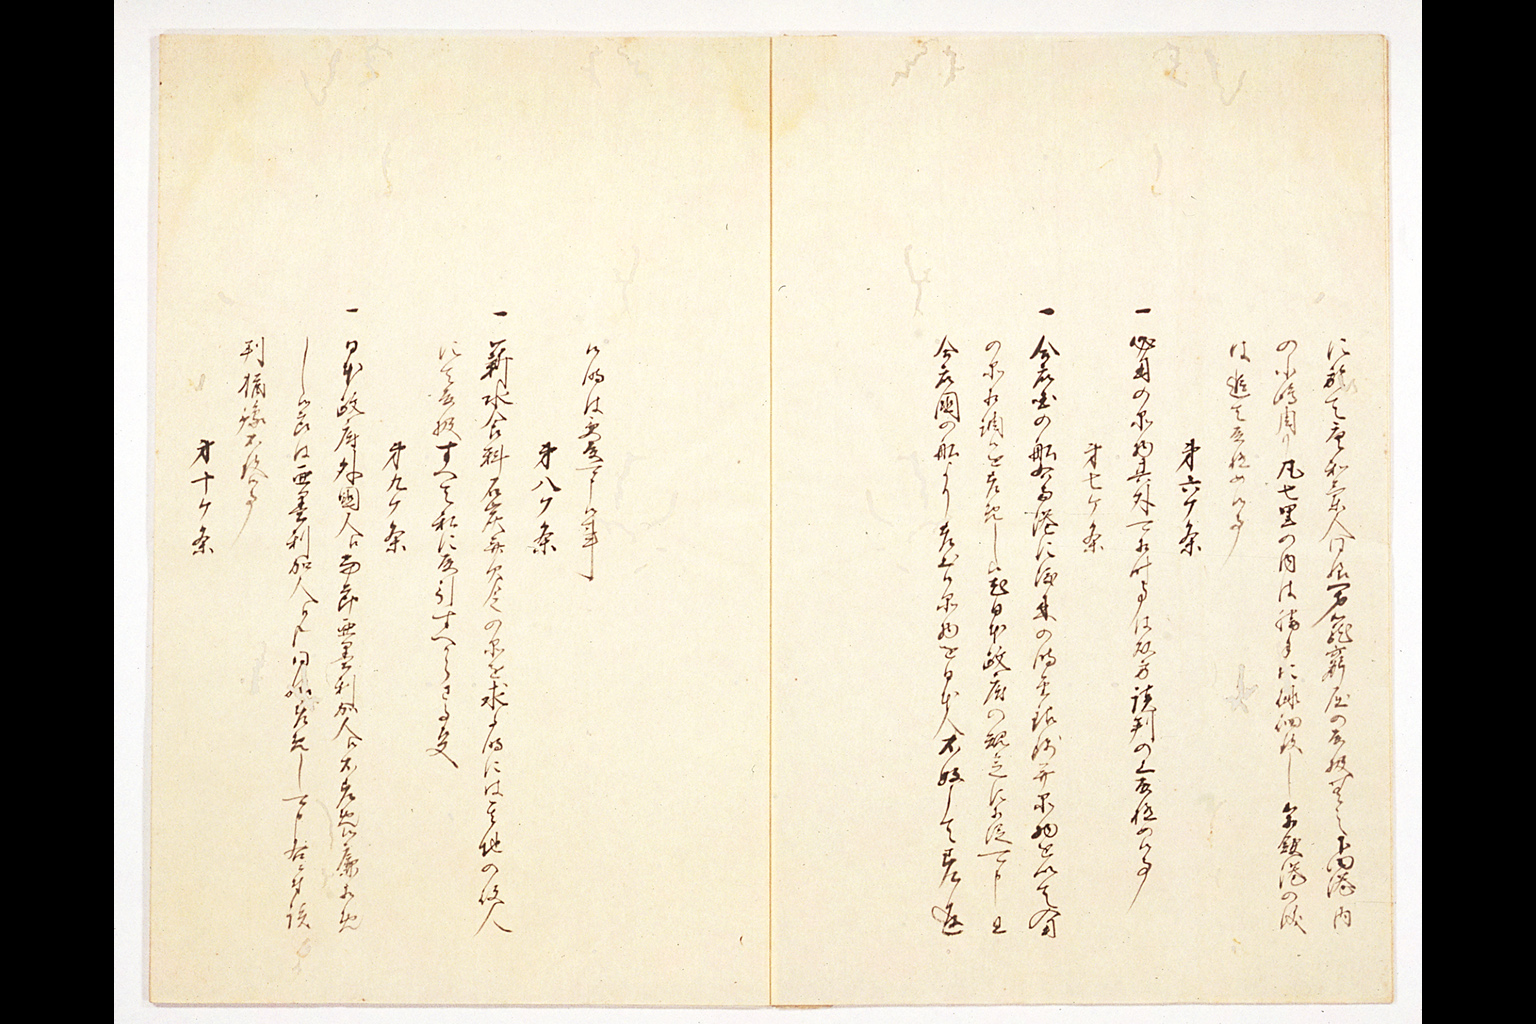 に於て唐和蘭人同様閉籠窮屈の取扱無之下田港内
の小島周り凡七里の内は勝手に徘徊致し箱館港の儀
は追て取極め候事
第六ケ条
一 必用の品物其外可相叶事は双方談判の上取極め候事
第七ケ条
一 合衆国の船右両港に渡来の時金銀銭并品物を以て入用
の品相調ひ候を差免し候尤日本政府の規定に相従可申且
合衆國の船より差出候品物を日本人不好して差返
候時は受取可申候事
第八ケ条
一 薪水食料石炭并欠乏の品を求る時には其地の役人
にて取扱すへて私に取引すへからさる事
第九ケ条
一 日本政府外國人江当節亜墨利加人江不差免候廉相免
し候節は亜墨利加人江も同様差免し可申右に付談
判猶豫不致候事
第十ケ条